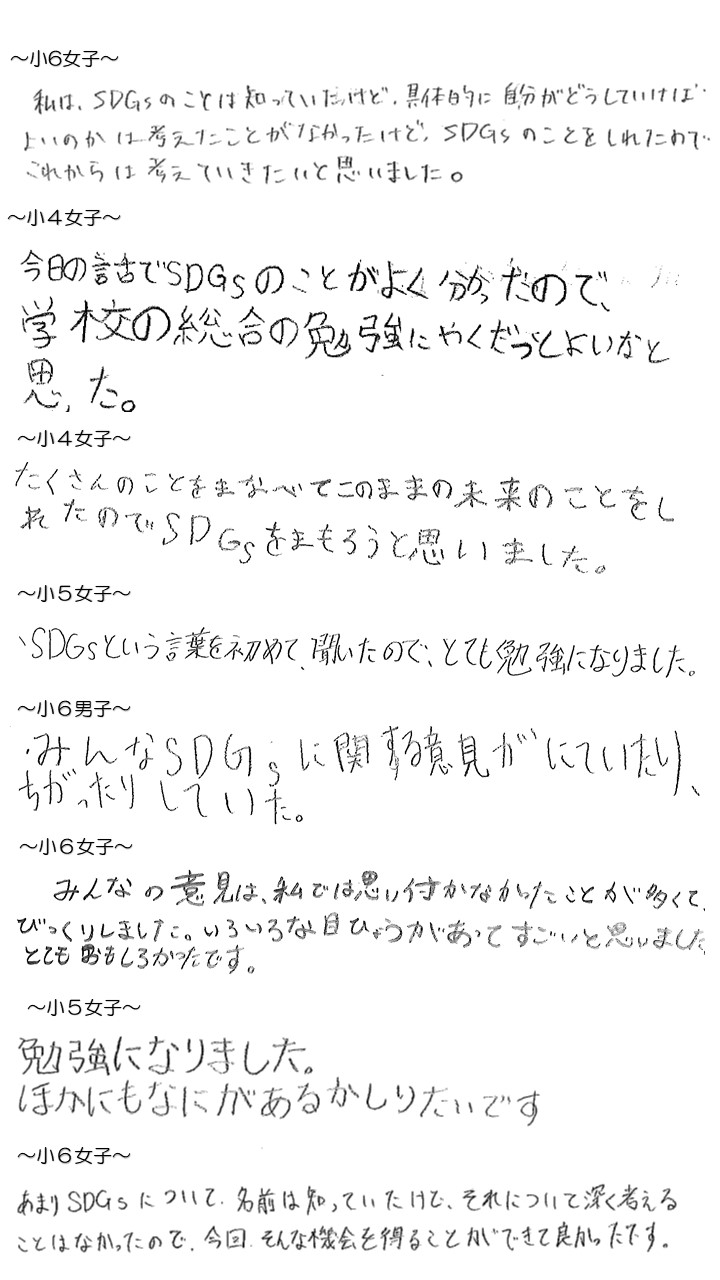 ～小6女子～
私は、SDGsのことは知っていたけど、具体的に自分がどうしていけば
よいのかは考えたことがなかったけど、SDGsのことをしれたので
これからは考えていきたいと思いました。
～小４女子～
今日の話でSDGsのことがよく分かったので、
学校の総合の勉強にやくだつとよいなと
思った。
～小４女子～
たくさんのことをまなべてこのままの未来のことをし
れたのでSDGsをまもろうと思いました。
～小５女子～
・SDGsという言葉を初めて、聞いたので、とても勉強になりました。
～小６男子～
・みんなSDGsに関する意見がにていたり、
ちがったりしていた。
～小６女子～
みんなの意見は、私では思い付かなかったことが多くて、
びっくりしました。いろいろな目ひょうがあってすごいと思いました
とてもおもしろかったです。
～小５女子～
勉強になりました。
ほかにもなにがあるかしりたいです
～小６女子～
あまりSDGsについて、名前は知っていたけど、それについて深く考える
ことはなかったので、今回、そんな機会を得ることができて良かったです。